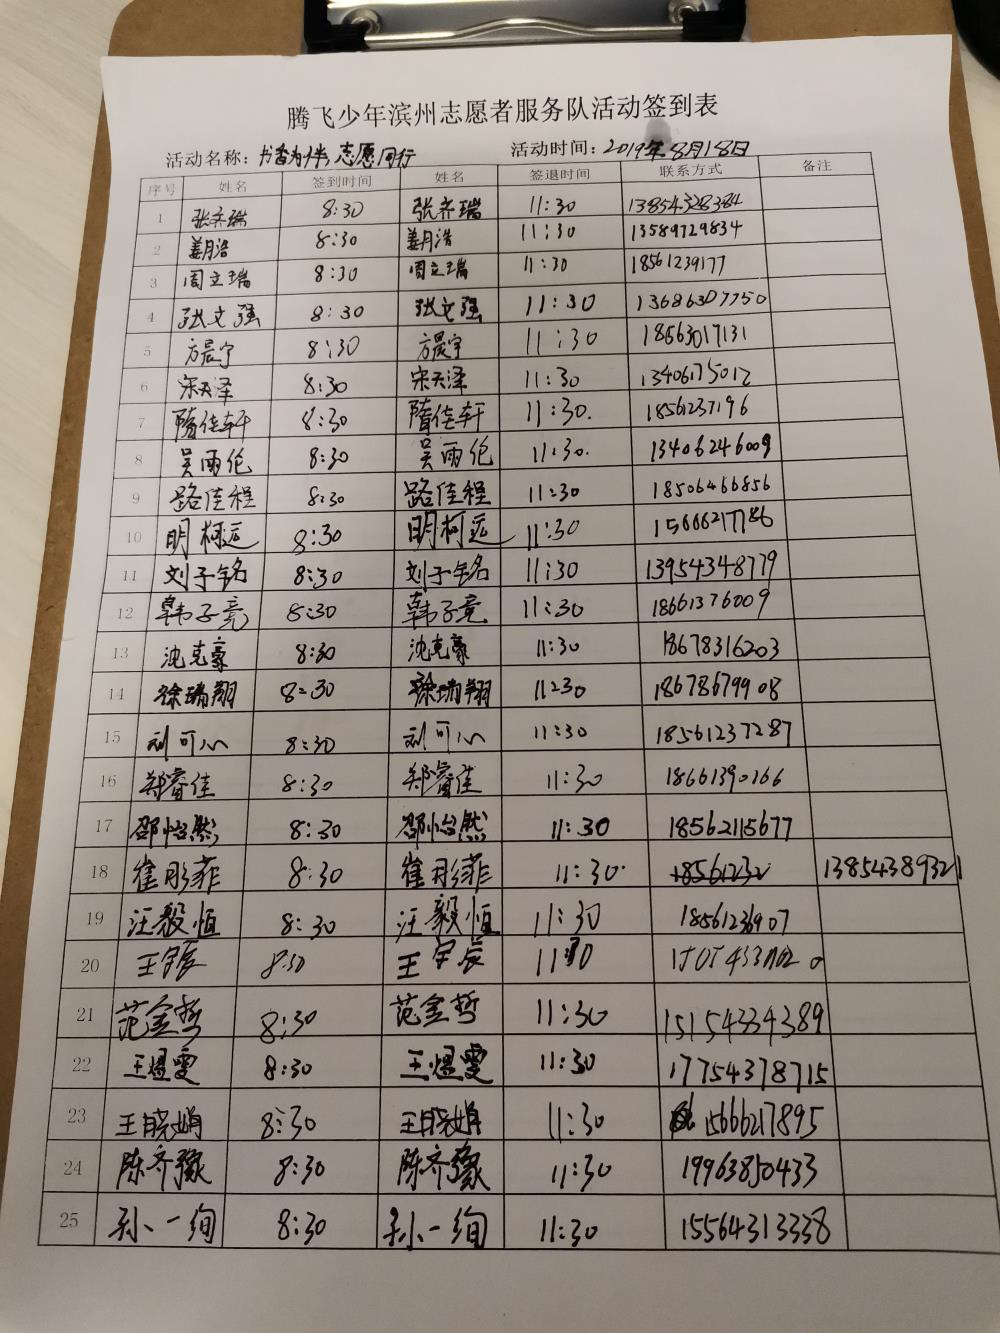 腾飞少年滨州志愿者服务队活动签到表
活动名称：书香为伴，志愿同行 活动时间：2019年8月18日
序号 姓名 签到时间 姓名 签退时间 联系方式 备注
1 张齐瑞 8:30 张齐瑞 11:30 13854328384
2 姜月浩 8:30 姜月浩 11:30 13589729834
3 周立瑞 8:30 周立瑞 11:30 18561239177
4 张文强 8:30 张文强 11:30 13686307750
5 方晨宇 8:30 方晨宇 11:30 18563017131
6 宋天泽 8:30 宋天泽 11:30 13406175012
7 隋佳轩 8:30 隋佳轩 11:30. 18561237196
8 吴雨伦 8:30 吴雨伦 11:30. 13406246009
9 路佳程 8:30 路佳程 11:30 18506466856
10 明柯远 8:30 明柯远 11:30 15666217786
11 刘子铭 8:30 刘子铭 11:30 13954348779
12 韩子竞 8:30 韩子竞 11:30 18661376009
13 沈克豪 8:30 沈克豪 11:30 18678316203
14 徐瑞翔 8:30 徐瑞翔 11:30 18678679908
15 刘可心 8:30 刘可心 11:30 18561237287
16 郑睿佳 8:30 郑睿佳 11:30 18661390166
17 邵怡然 8:30 邵怡然 11:30 18562115677
18 崔彤菲 8:30 崔彤菲 11:30. 13854389321
19 汪毅恒 8:30 汪毅恒 11:30 18561236907
20 王宇辰 8:30 王宇辰 11:30
21 范金哲 8:30 范金哲 11:30 15154334389
22 王煜雯 8:30 王煜雯 11:30 17754378715
23 王晓娟 8:30 王晓娟 11:30 15666217895
24 陈齐豫 8:30 陈齐豫 11:30 19963850433
25 孙一绚 8:30 孙一绚 11:30 15564313338